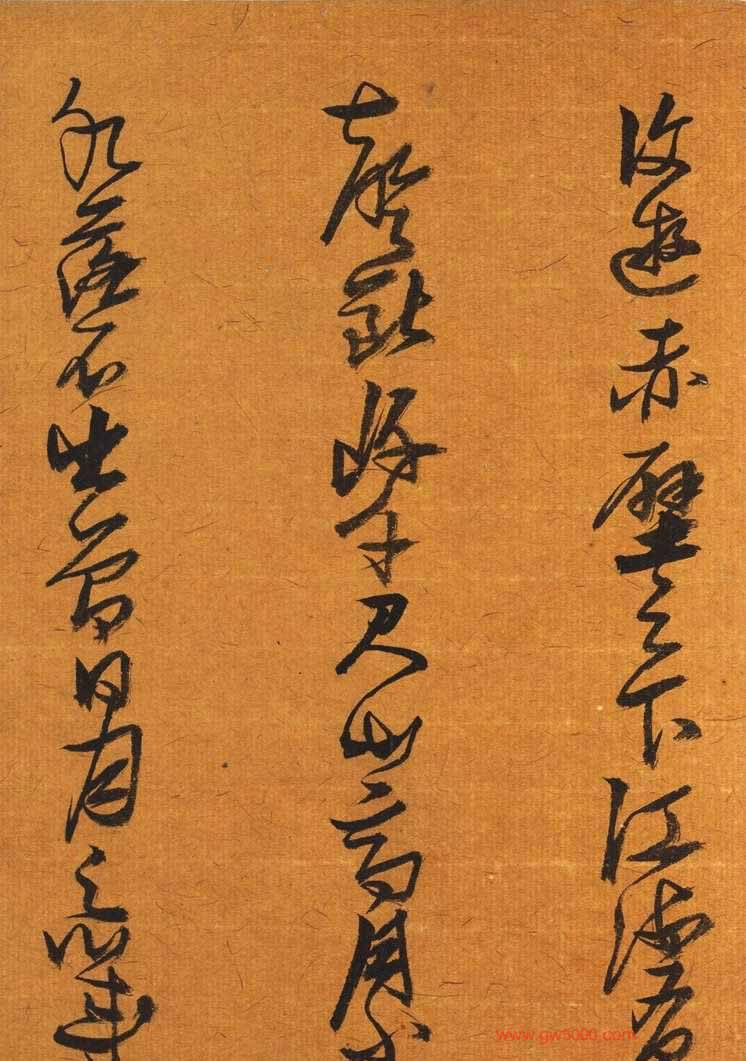 復遊赤壁之下江流有
聲斷岸千尺山高月小
水落石出曾日月之幾
www.gw5000.com